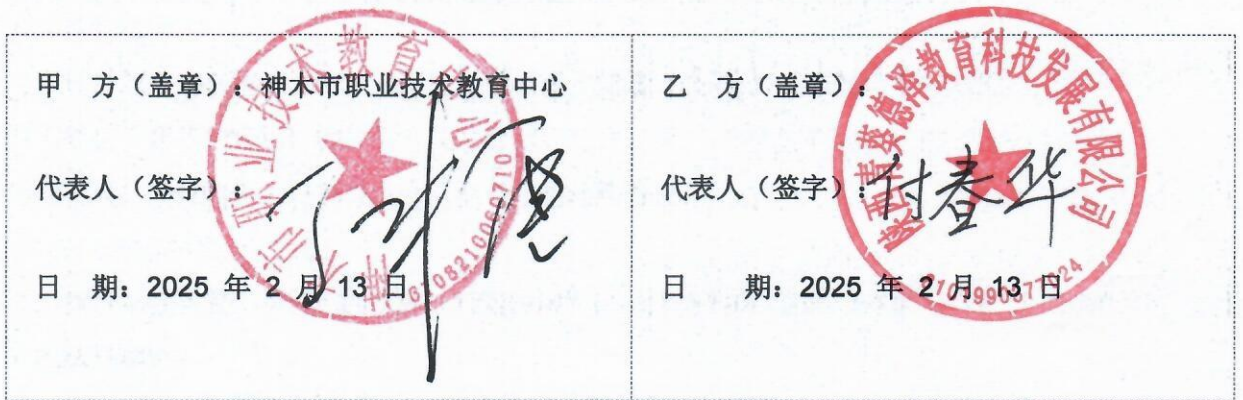 甲 方（盖章）：神木市职业技术教育中心
代表人（签字）：
日 期：2025 年 2 月 13 日
神木市职业技术教育中心
乙 方（盖章）：
代表人（签字）：付春华
日 期：2025 年 2 月 13 日
陕西青葵德泽教育科技发展有限公司